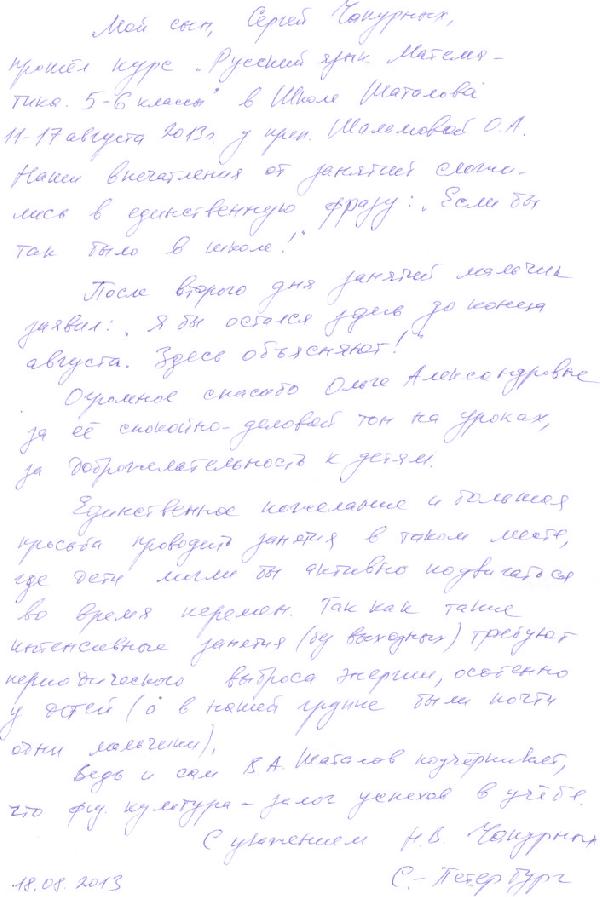 Мой сын, Сергей Чапурных,
прошёл курс „Русский язык. Матема-
тика. 5-6 классы" в Школе Шаталова
11-17 августа 2013г у преп. Шаломовой О.А.
Наши впечатления от занятий сложи-
лись в единственную фразу: „Если бы
так было в школе!"
После второго дня занятий мальчик
заявил: „Я бы остался здесь до конца
августа. Здесь объясняют!"
Огромное спасибо Ольге Александровне
за её спокойно-деловой тон на уроках,
за доброжелательность к детям.
Единственное пожелание и большая
просьба проводить занятия в таком месте,
где дети могли бы активно подвигаться
во время перемен. Так как такие
интенсивные занятия (без выходных) требуют
периодического выброса энергии, особенно
у детей (а в нашей группе были почти
одни мальчики).
Ведь и сам В.А. Шаталов подчёркивает,
что физ. культура – залог успехов в учёбе.
С уважением Н.В. Чапурных
18.08.2013 С.-Петербург